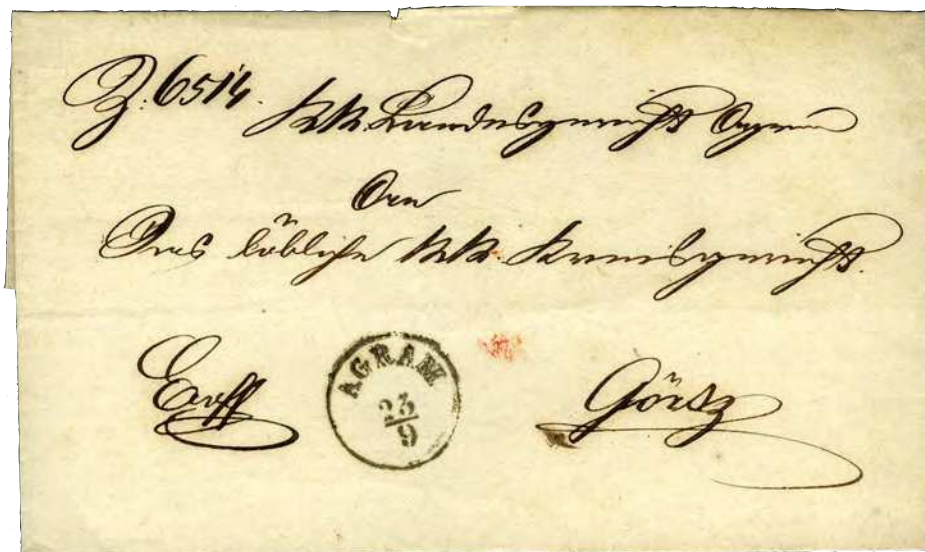 Z: 6514. KK. Landesgericht Agram
An
Das löbliche KK. Kreisgericht.
AGRAM
23/9
Görtz